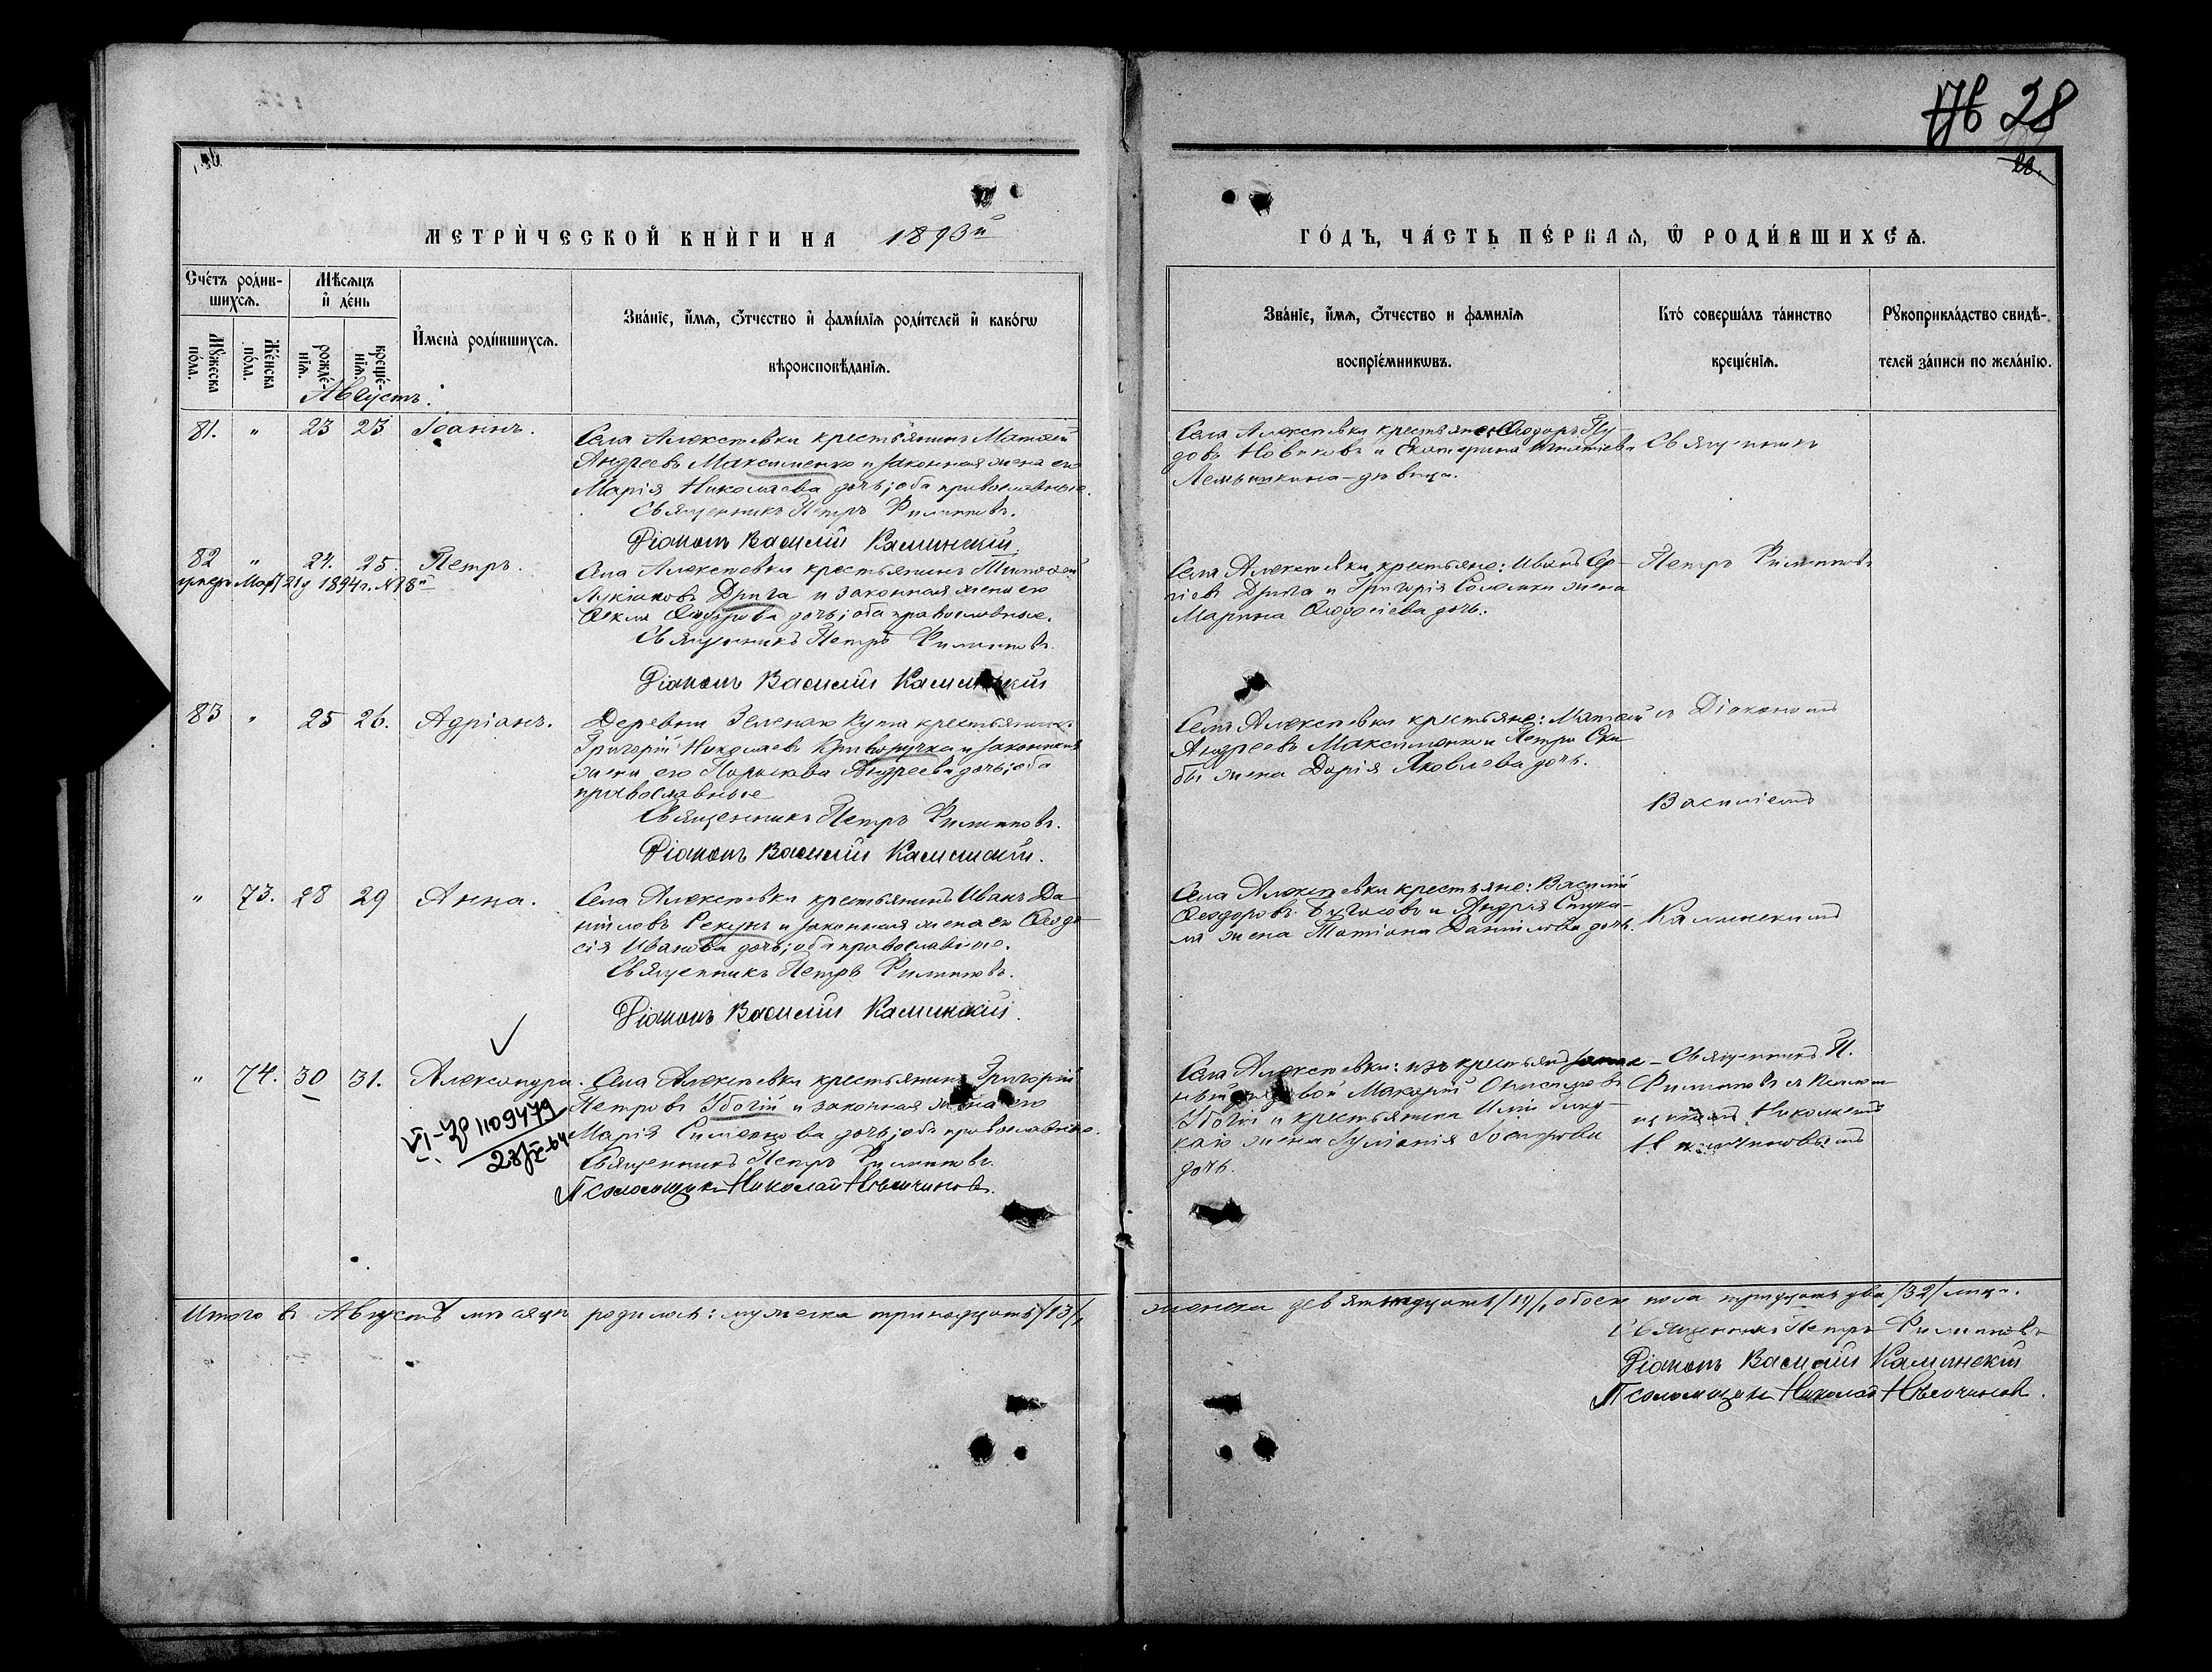 28
МЕТРИ́ЧЕСКОЙ КНИ́ГИ НА 1893й
ГО́ДЪ, ЧА́СТЬ ПЕ́РВАЯ, Ѿ РОДИ́ВШИХСЯ.
Сче́тъ роди́в-
шихся.
Мѣ́сяцъ
и҆ де́нь
Мꙋ́жеска
по́ла.
Же́нска
по́ла.
рожде́-
нїя.
креще́-
нїя.
И҆мена̀ роди́вшихся.
Зва́нїе, и҆́мя, ѻ҆́тчество и҆ фами́лїя роди́телей и҆ како́гѡ
вѣроисповѣ́данїя.
Зва́нїе, и҆́мя, ѻ҆́тчество и фами́лїя
воспрїе́мникѡвъ.
Кто́ соверша́лъ та́инство
креще́нїя.
Рꙋкоприкла́дство свидѣ́-
телей за́писи по жела́нїю.
Августъ.
81. " 23 23 Іоаннъ.
Села Алексѣевки крестьянинъ Матѳей
Андреевъ Максименко и законная жена его
Марія Николаева дочь; оба православные.
Священникъ Петръ Филипповъ.
Діаконъ Василій Калинскій.
Села Алексѣевки крестьяне: Ѳеодоръ
довъ Новиковъ и Екатерина Игнатіева
Лемешкина – дѣвица.
Священникъ
82 " 24. 25. Петръ.
умеръ Мар. 21 д 1894 г. №78й
Села Алексѣевки крестьянинъ Тимоѳей
Лукіановъ Дрига и законная жена его
Ѳекла Ѳеодорова дочь; оба православные.
Священникъ Петръ Филипповъ.
Діаконъ Василій Калинскій
Села Алексѣевки крестьяне: Иванъ Сер-
гіевъ Дрига и Григорія жена
Марина Ѳеодосіева дочь.
Петръ Филипповъ
83 " 25 26. Адріанъ.
Деревни Зеленаго Кута крестьянинъ:
Григорій Николаевъ Криворучка и законная
жена его Параскева Андреева дочь; оба
православные
Священникъ Петръ Филипповъ.
Діаконъ Василій Калинскій.
Села Алексѣевки крестьяне: Матѳей
Андреевъ Максименко и Петра Ски-
бы жена Дарія Яковлева дочь.
съ Діакономъ
Василіемъ
" 73. 28 29 Анна.
Села Алексѣевки крестьянинъ Иванъ Да-
ніиловъ Рекунъ и законная жена его Ѳеодо-
сія Иванова дочь; оба православные.
Священникъ Петръ Филипповъ.
Діаконъ Василій Калинскій.
Села Алексѣевки крестьяне: Василій
Ѳеодоровъ и Андрея Стука-
ла жена Татіана Даніилова дочь.
Калинскимъ
" 74. 30 31. Александра.
VI-УР 1109479
28/X-64
Села Алексѣевки крестьянинъ Григорій
Петровъ Убогій и законная жена его
Марія Симеонова дочь; оба православные.
Священникъ Петръ Филипповъ.
Псаломщикъ Николай Нѣмчиновъ.
Села Алексѣевки: изъ крестьянъ запас-
ный рядовой Макарій Онисимовъ
Убогій и крестьянина Иліи
каго жена Іуліанія
дочь.
Священникъ П.
Филипповъ съ Псалом-
щикомъ Николаемъ
Нѣмчиновымъ
Итого въ Августѣ мѣсяцѣ родилось: мужеска тринадцать /13/,
женска девятнадцать /19/, обоего пола тридцать два /32/ лица.
Священникъ Петръ Филипповъ
Діаконъ Василій Калинскій
Псаломщикъ Николай Нѣмчиновъ.